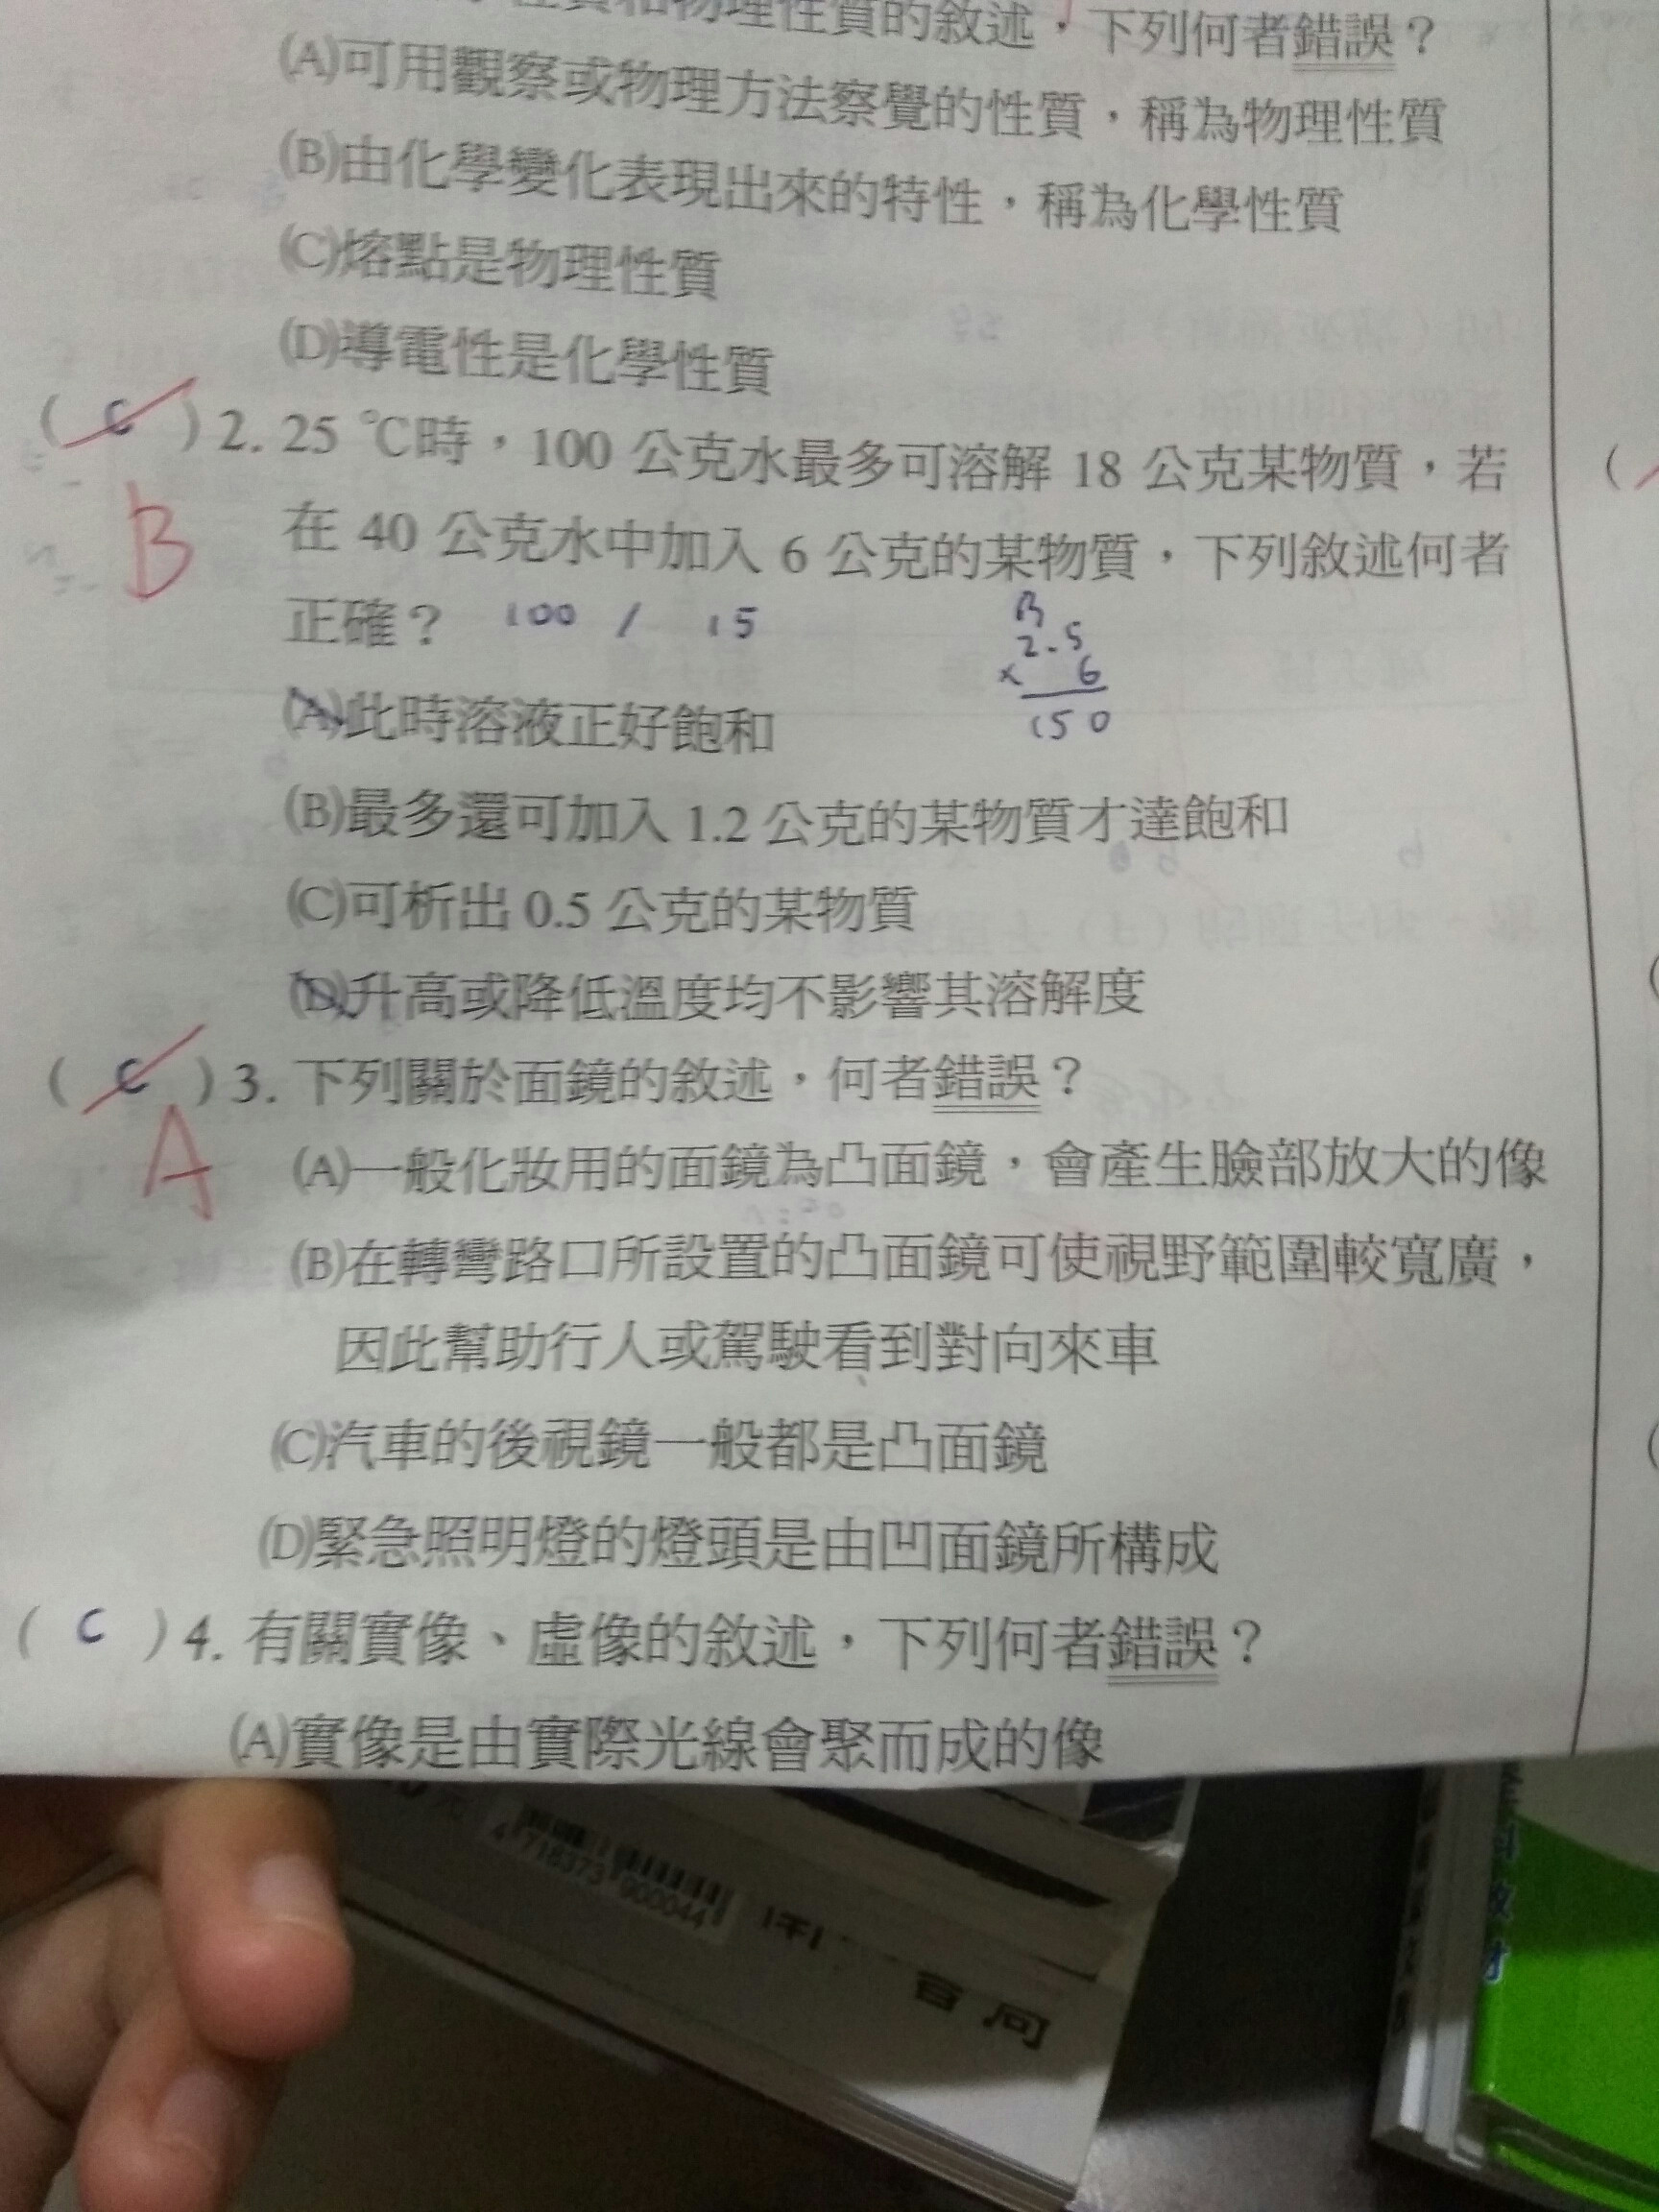 性質和物理性質的敘述，下列何者錯誤？
(A)可用觀察或物理方法察覺的性質，稱為物理性質
(B)由化學變化表現出來的特性，稱為化學性質
(C)熔點是物理性質
(D)導電性是化學性質
( C )2. 25 ℃時，100 公克水最多可溶解 18 公克某物質，若
B
在 40 公克水中加入 6 公克的某物質，下列敘述何者
正確？ 100 / 15
B
2.5
× 6
150
(A)此時溶液正好飽和
(B)最多還可加入 1.2 公克的某物質才達飽和
(C)可析出 0.5 公克的某物質
(D)升高或降低溫度均不影響其溶解度
( C )3. 下列關於面鏡的敘述，何者錯誤？
A
(A)一般化妝用的面鏡為凸面鏡，會產生臉部放大的像
(B)在轉彎路口所設置的凸面鏡可使視野範圍較寬廣，
因此幫助行人或駕駛看到對向來車
(C)汽車的後視鏡一般都是凸面鏡
(D)緊急照明燈的燈頭是由凹面鏡所構成
( C )4. 有關實像、虛像的敘述，下列何者錯誤？
(A)實像是由實際光線會聚而成的像
4 718373 900044